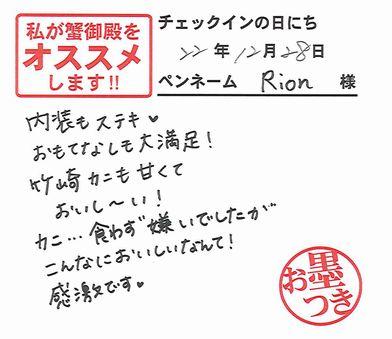 私が蟹御殿を
オススメ
します!!
チェックインの日にち
22年12月28日
ペンネーム Rion 様
内装もステキ♥
おもてなしも大満足！
竹崎カニも甘くて
おいし〜い！
カニ…食わず嫌いでしたが
こんなにおいしいなんて！
感激です♥
お墨
つき